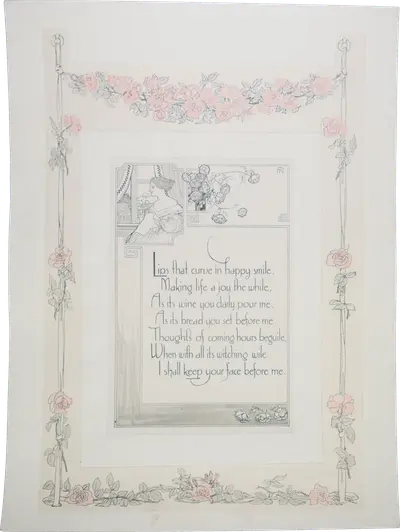 Lips that curve in happy smile.
Making life a joy the while.
As its wine you daily pour me.
As its bread you set before me.
Thoughts of coming hours beguile,
When with all its witching wile
I shall keep your face before me.